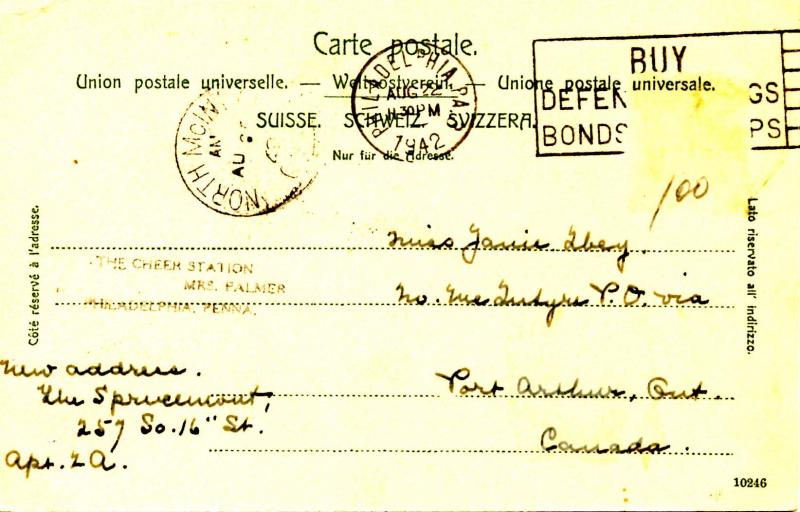 Carte postale.
Union postale universelle. — Weltpostverein. — Unione postale universale.
SUISSE. SCHWEIZ. SVIZZERA.
Nur für die Adresse.
PHILADELPHIA, PA.
AUG 22
1942
BUY
DEFEN GS
BONDS PS
NORTH McIN
AM
AU
100
Côté réservé à l'adresse.
Lato riservato all' indirizzo.
THE CHEER STATION
MRS. PALMER
PHILADELPHIA, PENNA.
Miss Janie
No. McIntyre P.O. via
Port Arthur, Ont.
Canada.
New address.
The Sprucemont,
257 So. 16" St.
Apt. 2A.
10246